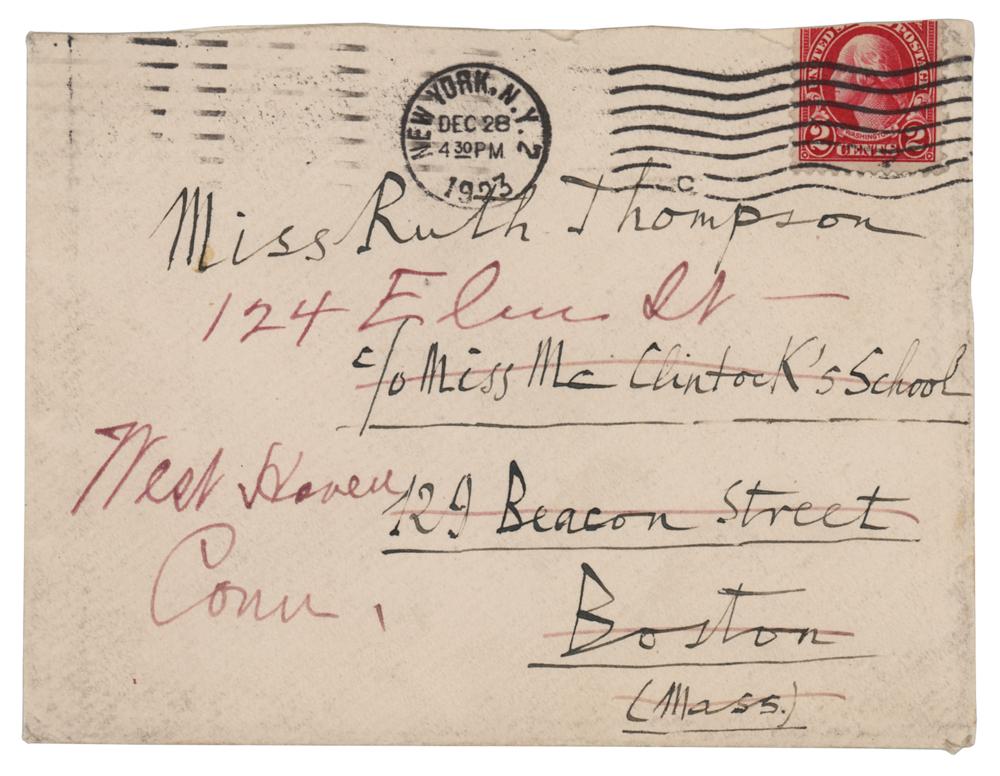 UNITED S POSTAGE
WASHINGTON
2 CENTS 2
NEW YORK, N.Y. 2
DEC 28
4 30 PM
1923
C
Miss Ruth Thompson
124 Elm St —
c/o Miss Mc Clintock's School
West Haven
129 Beacon Street
Conn,
Boston
(Mass.)